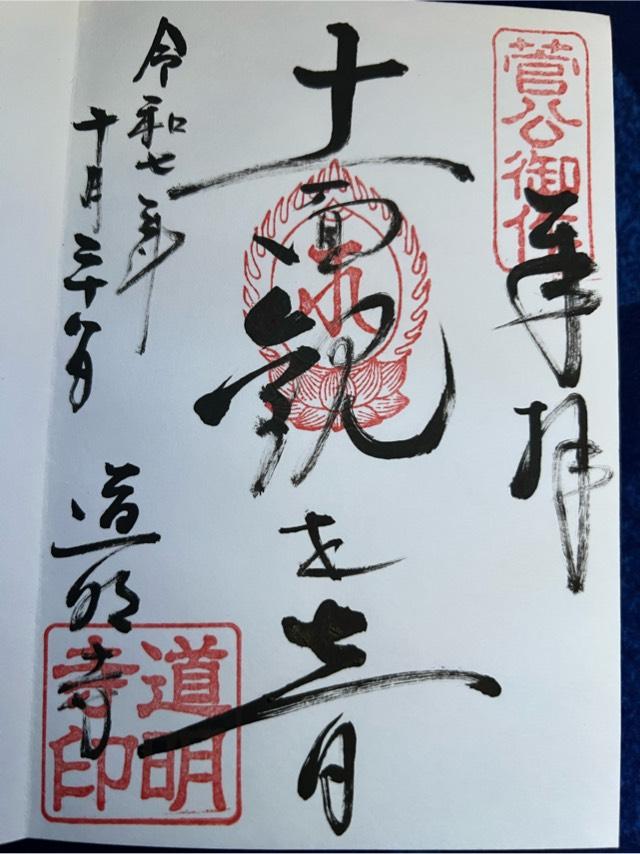 菅公御作
奉拝
十一面観世音
令和七年
十月三十一日
道明寺
道明寺印